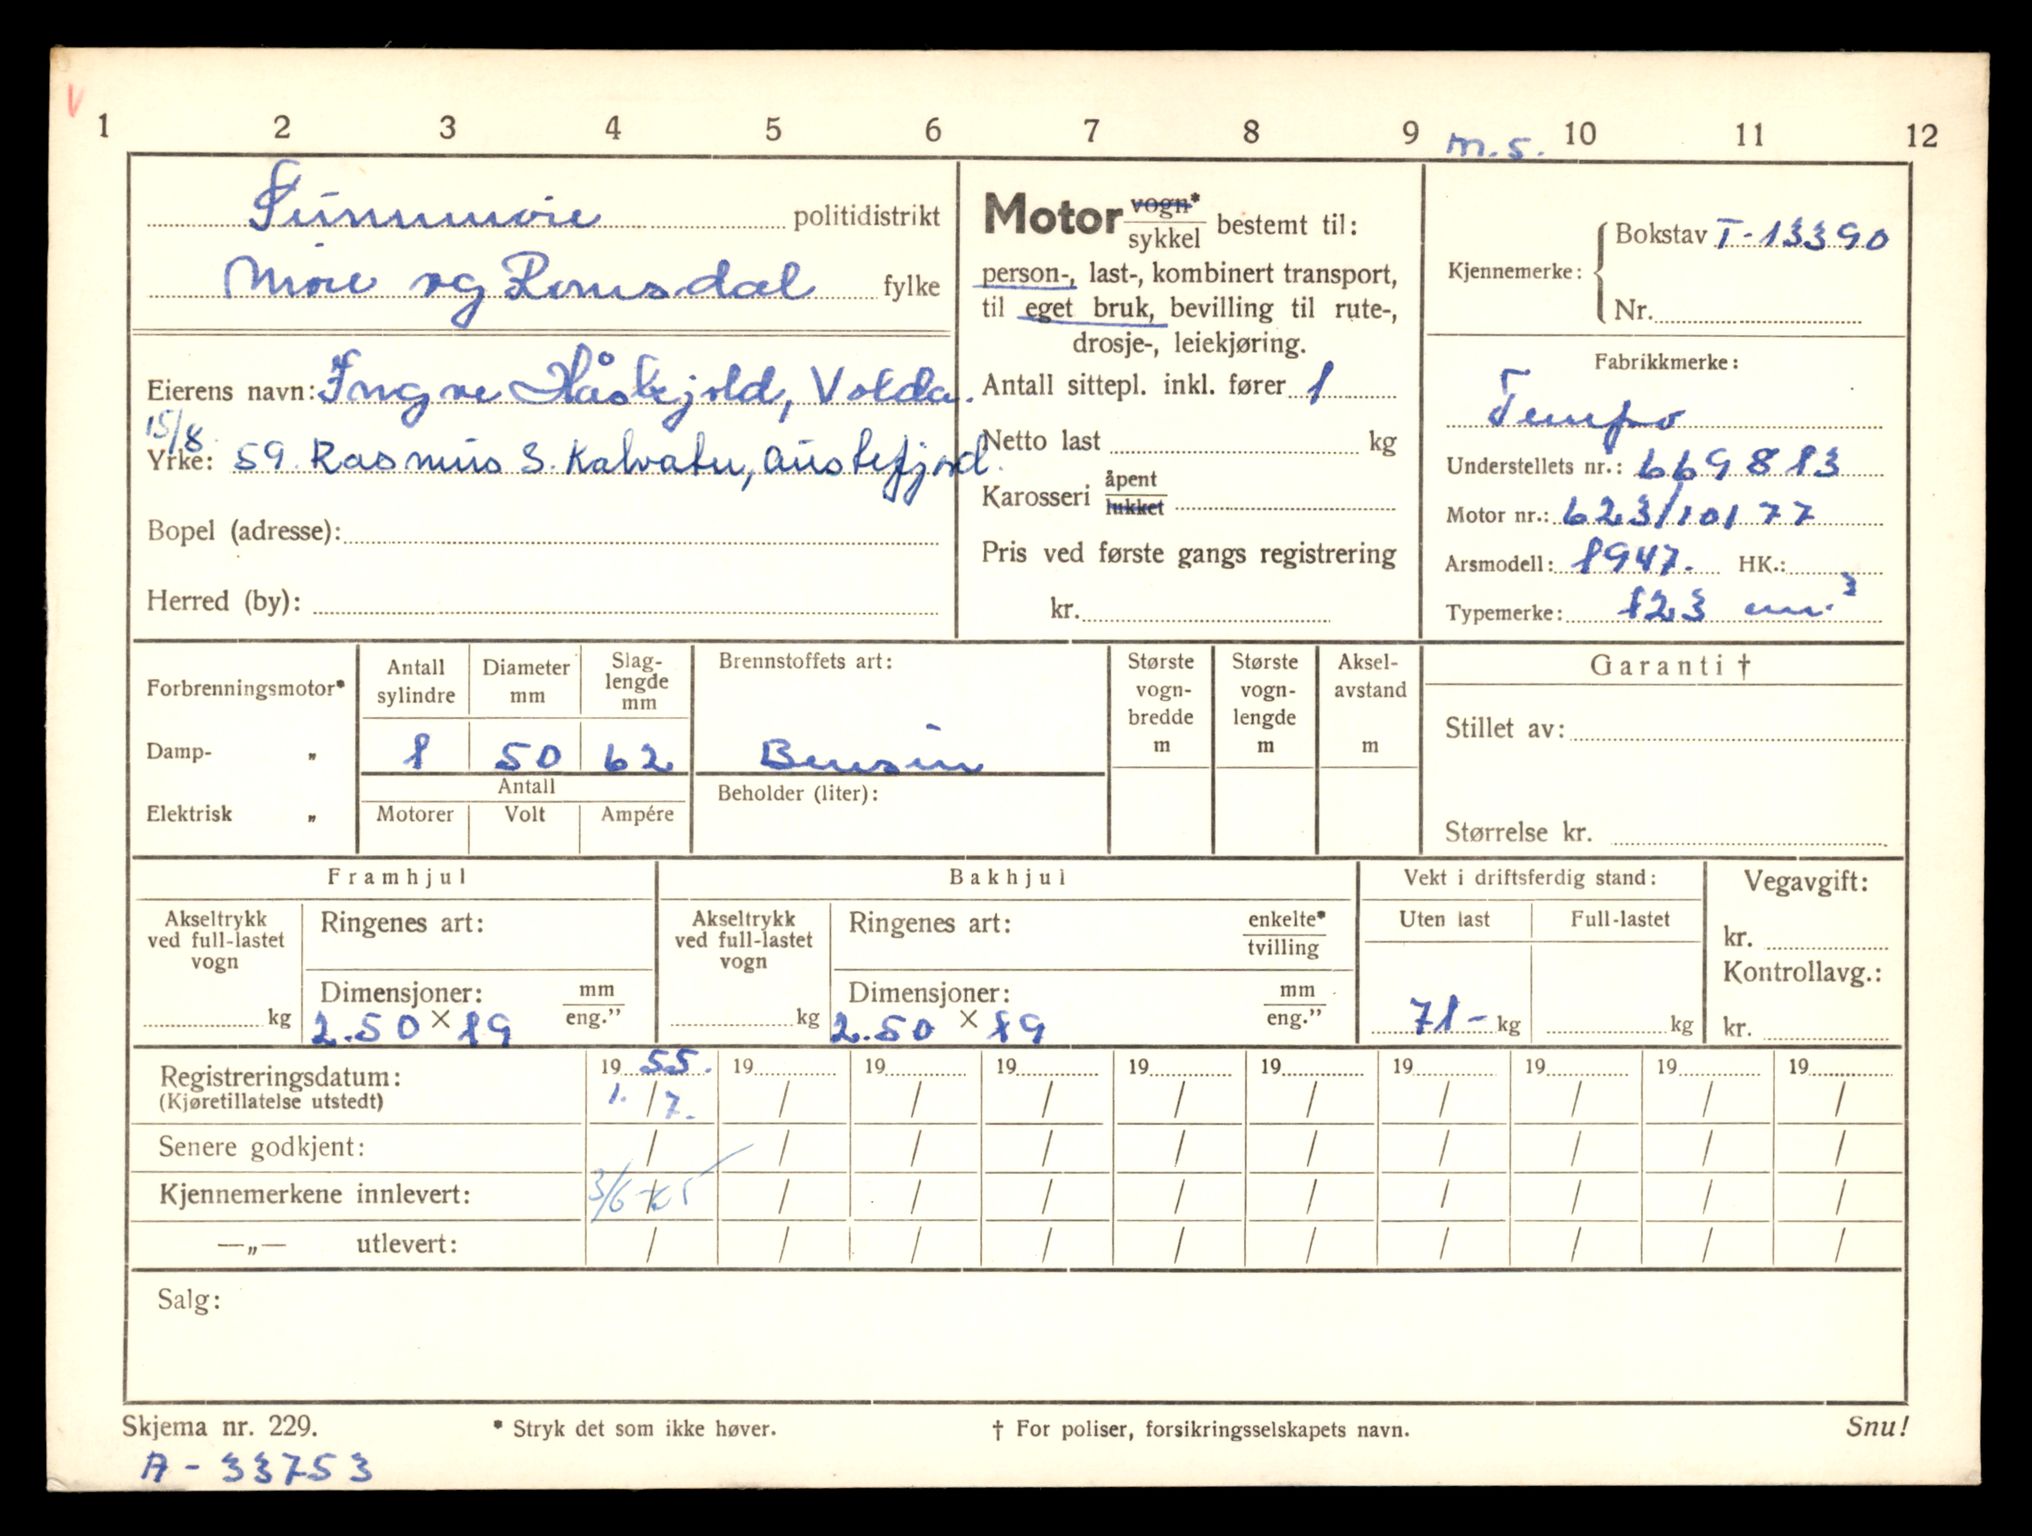 V
1 2 3 4 5 6 7 8 9 10 11 12
m.s.
Sunnmøre politidistrikt
Møre og Romsdal fylke
Eierens navn: Yngve Håskjold, Volda.
15/8
Yrke: 59. Rasmus S. Kalvatn, Austefjord.
Bopel (adresse):
Herred (by):
Motor vogn*/sykkel bestemt til:
person-, last-, kombinert transport,
til eget bruk, bevilling til rute-,
drosje-, leiekjøring.
Antall sittepl. inkl. fører 1
Netto last kg
Karosseri åpent/lukket
Pris ved første gangs registrering
kr.
Kjennemerke: Bokstav T-13390
Nr.
Fabrikkmerke:
Tempo
Understellets nr.: 669813
Motor nr.: 623/10177
Arsmodell: 1947. HK.:
Typemerke: 123 cm.³
Forbrenningsmotor*
Damp- „
Elektrisk „
Antall sylindre
Diameter mm
Slag-lengde mm
1 50 62
Antall
Motorer Volt Ampére
Brennstoffets art:
Bensin
Beholder (liter):
Største vogn-bredde m
Største vogn-lengde m
Aksel-avstand m
Garanti †
Stillet av:
Størrelse kr.
Framhjul
Akseltrykk ved full-lastet vogn
kg
Ringenes art:
Dimensjoner: mm/eng."
2.50 × 19
Bakhjul
Akseltrykk ved full-lastet vogn
kg
Ringenes art: enkelte*/tvilling
Dimensjoner: mm/eng."
2.50 × 19
Vekt i driftsferdig stand:
Uten last Full-lastet
71- kg kg
Vegavgift:
kr.
Kontrollavg.:
kr.
Registreringsdatum: 19 55. 19 19 19 19 19 19 19 19 19
(Kjøretillatelse utstedt) 1. / 7. / / / / / / / / /
Senere godkjent: / / / / / / / / / /
Kjennemerkene innlevert: 3/6- / / / / / / / / /
—„— utlevert: / / / / / / / / / /
Salg:
Skjema nr. 229. * Stryk det som ikke høver. † For poliser, forsikringsselskapets navn. Snu!
A - 33753